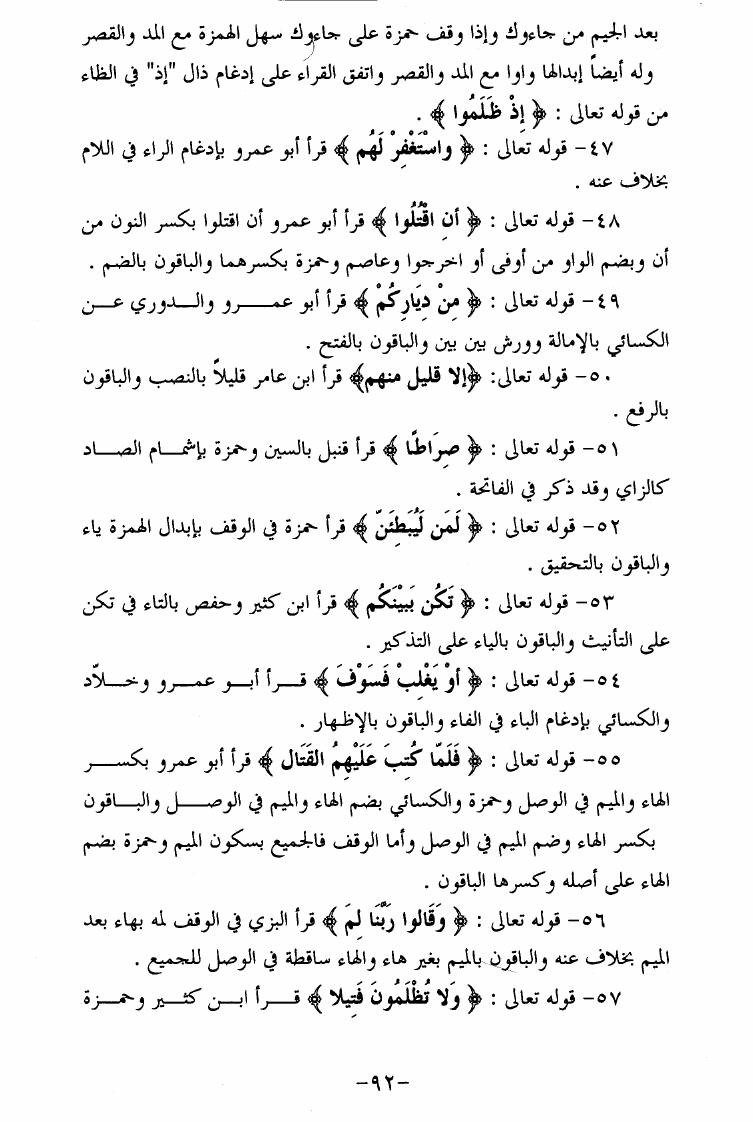 بعد الجيم من جاءوك وإذا وقف حمزة على جاءوك سهل الهمزة مع المد والقصر
وله أيضاً إبدالها واوا مع المد والقصر واتفق القراء على إدغام ذال "إذ" في الظاء
من قوله تعالى : ﴿ إِذْ ظَلَمُوا ﴾ .
٤٧- قوله تعالى : ﴿ واسْتَغْفِرْ لَهُم ﴾ قرأ أبو عمرو بإدغام الراء في اللام
بخلاف عنه .
٤٨- قوله تعالى : ﴿ أن اقْتُلُوا ﴾ قرأ أبو عمرو أن اقتلوا بكسر النون من
أن وبضم الواو من أوفى أو اخرجوا وعاصم وحمزة بكسرهما والباقون بالضم .
٤٩- قوله تعالى : ﴿ مِنْ دِيَارِكُمْ ﴾ قرأ أبو عمـــرو والـــدوري عـــن
الكسائي بالإمالة وورش بين بين والباقون بالفتح .
٥٠- قوله تعالى: ﴿إلا قليل منهم﴾ قرأ ابن عامر قليلاً بالنصب والباقون
بالرفع .
٥١- قوله تعالى : ﴿ صِرَاطًا ﴾ قرأ قنبل بالسين وحمزة بإشمـــام الصـــاد
كالزاي وقد ذكر في الفاتحة .
٥٢- قوله تعالى : ﴿ لَمَن لَيُبَطِئَنّ ﴾ قرأ حمزة في الوقف بإبدال الهمزة ياء
والباقون بالتحقيق .
٥٣- قوله تعالى : ﴿ تَكُن بَيْنَكُم ﴾ قرأ ابن كثير وحفص بالتاء في تكن
على التأنيث والباقون بالياء على التذكير .
٥٤- قوله تعالى : ﴿ أوْ يَغْلِبْ فَسَوْفَ ﴾ قـــرأ أبـــو عمـــرو وخـــلاّد
والكسائي بإدغام الباء في الفاء والباقون بالإظهار .
٥٥- قوله تعالى : ﴿ فَلَمّا كُتِبَ عَلَيْهِمُ القَتَال ﴾ قرأ أبو عمرو بكســـر
الهاء والميم في الوصل وحمزة والكسائي بضم الهاء والميم في الوصـــل والبـــاقون
بكسر الهاء وضم الميم في الوصل وأما الوقف فالجميع بسكون الميم وحمزة بضم
الهاء على أصله وكسرها الباقون .
٥٦- قوله تعالى : ﴿ وَقَالوا رَبَّنَا لِمَ ﴾ قرأ البزي في الوقف لمه بهاء بعد
الميم بخلاف عنه والباقون بالميم بغير هاء والهاء ساقطة في الوصل للجميع .
٥٧- قوله تعالى : ﴿ وَلا تُظْلَمُونَ فَتِيلا ﴾ قـــرأ ابـــن كثـــير وحمـــزة
-٩٢-